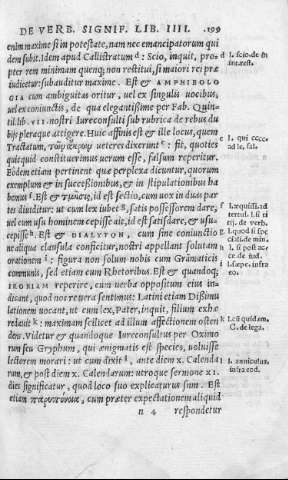 DE VERB. SIGNIF. LIB. IIII. 199
enim maxime si in potestate, nam nec emancipatorum qui
dem subit. Idem apud Callistratum d: Scio, inquit, prop
ter rem minimam quenq; non restitui, si maiori rei præ
iudicetur: subauditur maxime. Est & AMPHIBOLO
GIA cum ambiguitas oritur, uel ex singulis uocibus,
uel ex coniunctis, de qua elegantissime per Fab. Quin-
til. lib. VII. nostri Iureconsulti sub rubrica de rebus du
bijs pleraque attigere. Huic affinis est & ille locus, quem
Tractatum, ueteres dixerunt f: fit, quoties
quicquid constituerimus uerum esse, falsum reperitur.
Eodem etiam pertinent quæ perplexa dicuntur, quorum
exemplum & in successionibus, & in stipulationibus ha
bemus. Est & id est sectio, cum uox in duas par
tes diuiditur: ut cum lex iubet, satis possessorem dare,
uel cum usu hominem cepisse ait, id est satisdare, & usu-
cepisse h. Est & DIALYTON, cum sine coniunctio
ne aliqua clausula conficitur, nostri appellant solutam
orationem i: figura non solum nobis cum Grāmaticis
communis, sed etiam cum Rhetoribus. Est & quandoq;
IRONIAM reperire, cum uerba oppositum eius in-
dicant, quod nos reuera sentimus: Latini etiam Dissimu
lationem uocant, ut cum lex, Pater, inquit, filium exhæ
redauit k: maximam scilicet ad illum affectionem osten
dens. Videtur & quandoque Iureconsultus per Oximo
rum seu Gryphum, qui ænigmatis est species, uoluisse
lectorem morari: ut cum dixit l, ante diem x. Calenda
rum, & post diem x. Calendarum: utroque sermone XI.
dies significatur, quod loco suo explicaturus sum. Est
etiam cum præter expectationem aliquid
n 4 respondetur
d l. scio. de in
interest.
f l. qui
ad le. fal.
l. si post
ce de iud.
k l. si quidem.
C. de lega.
l l. anniculus.
infra eod.